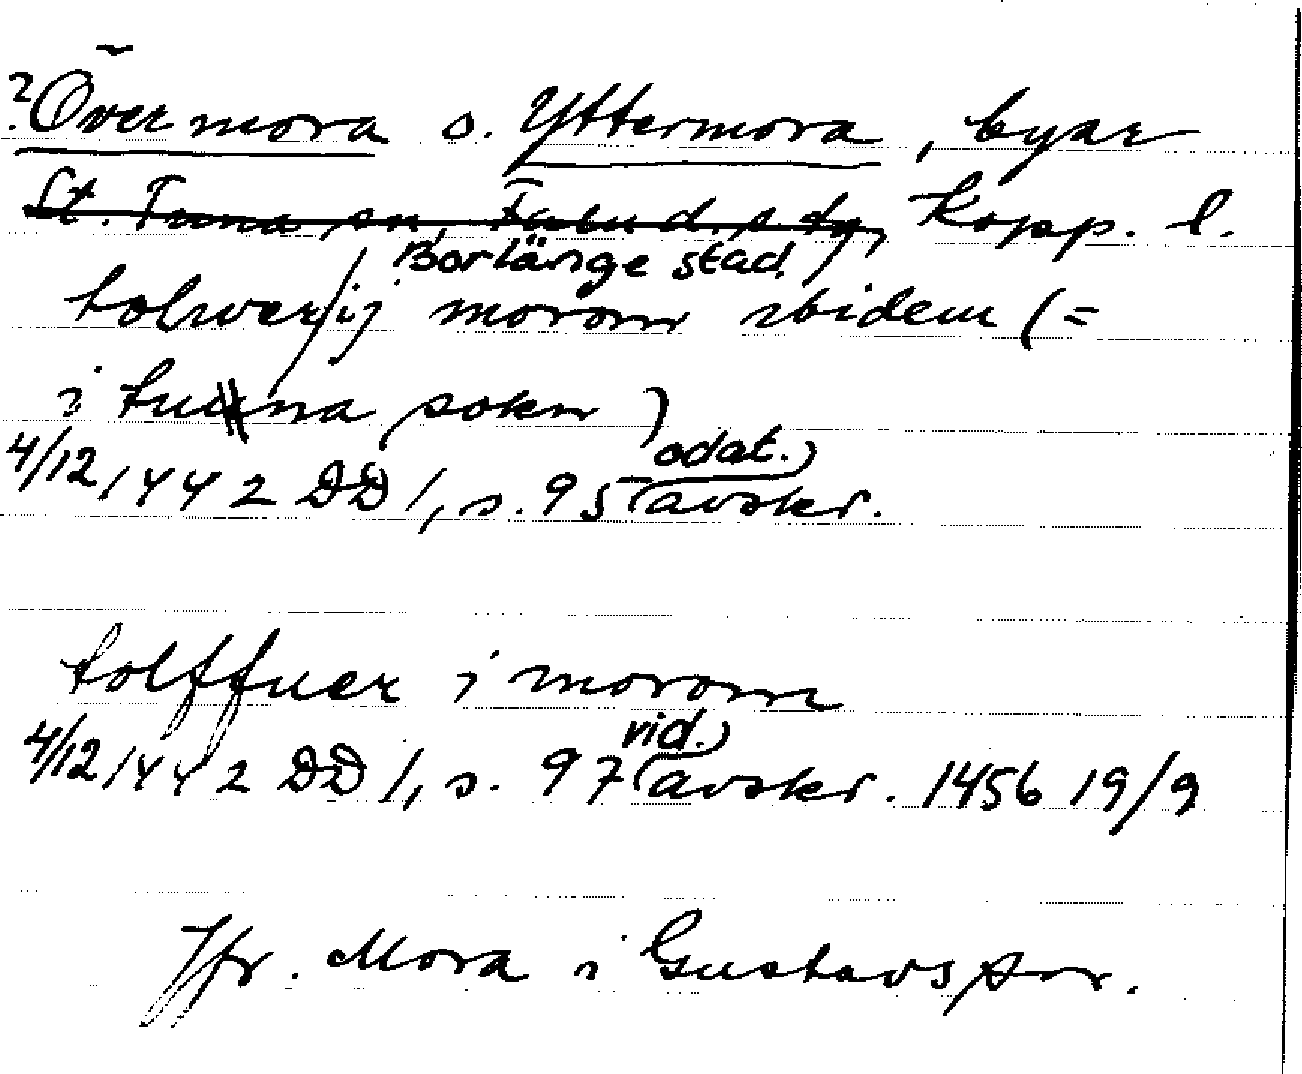 ? Övermora o. Yttermora, byar
St. Tuna sn, Falu d. s. fg, Kopp. l.
Borlänge stad,
tolwer ij morom ibidem (=
i tuna sokn)
4/12 1442 DD 1, s. 95 (avskr. odat.)
tolffuer i morom
4/12 1442 DD 1, s. 97 (avskr. 1456 19/9 vid.)
Jfr. Mora i Gustavs sn.